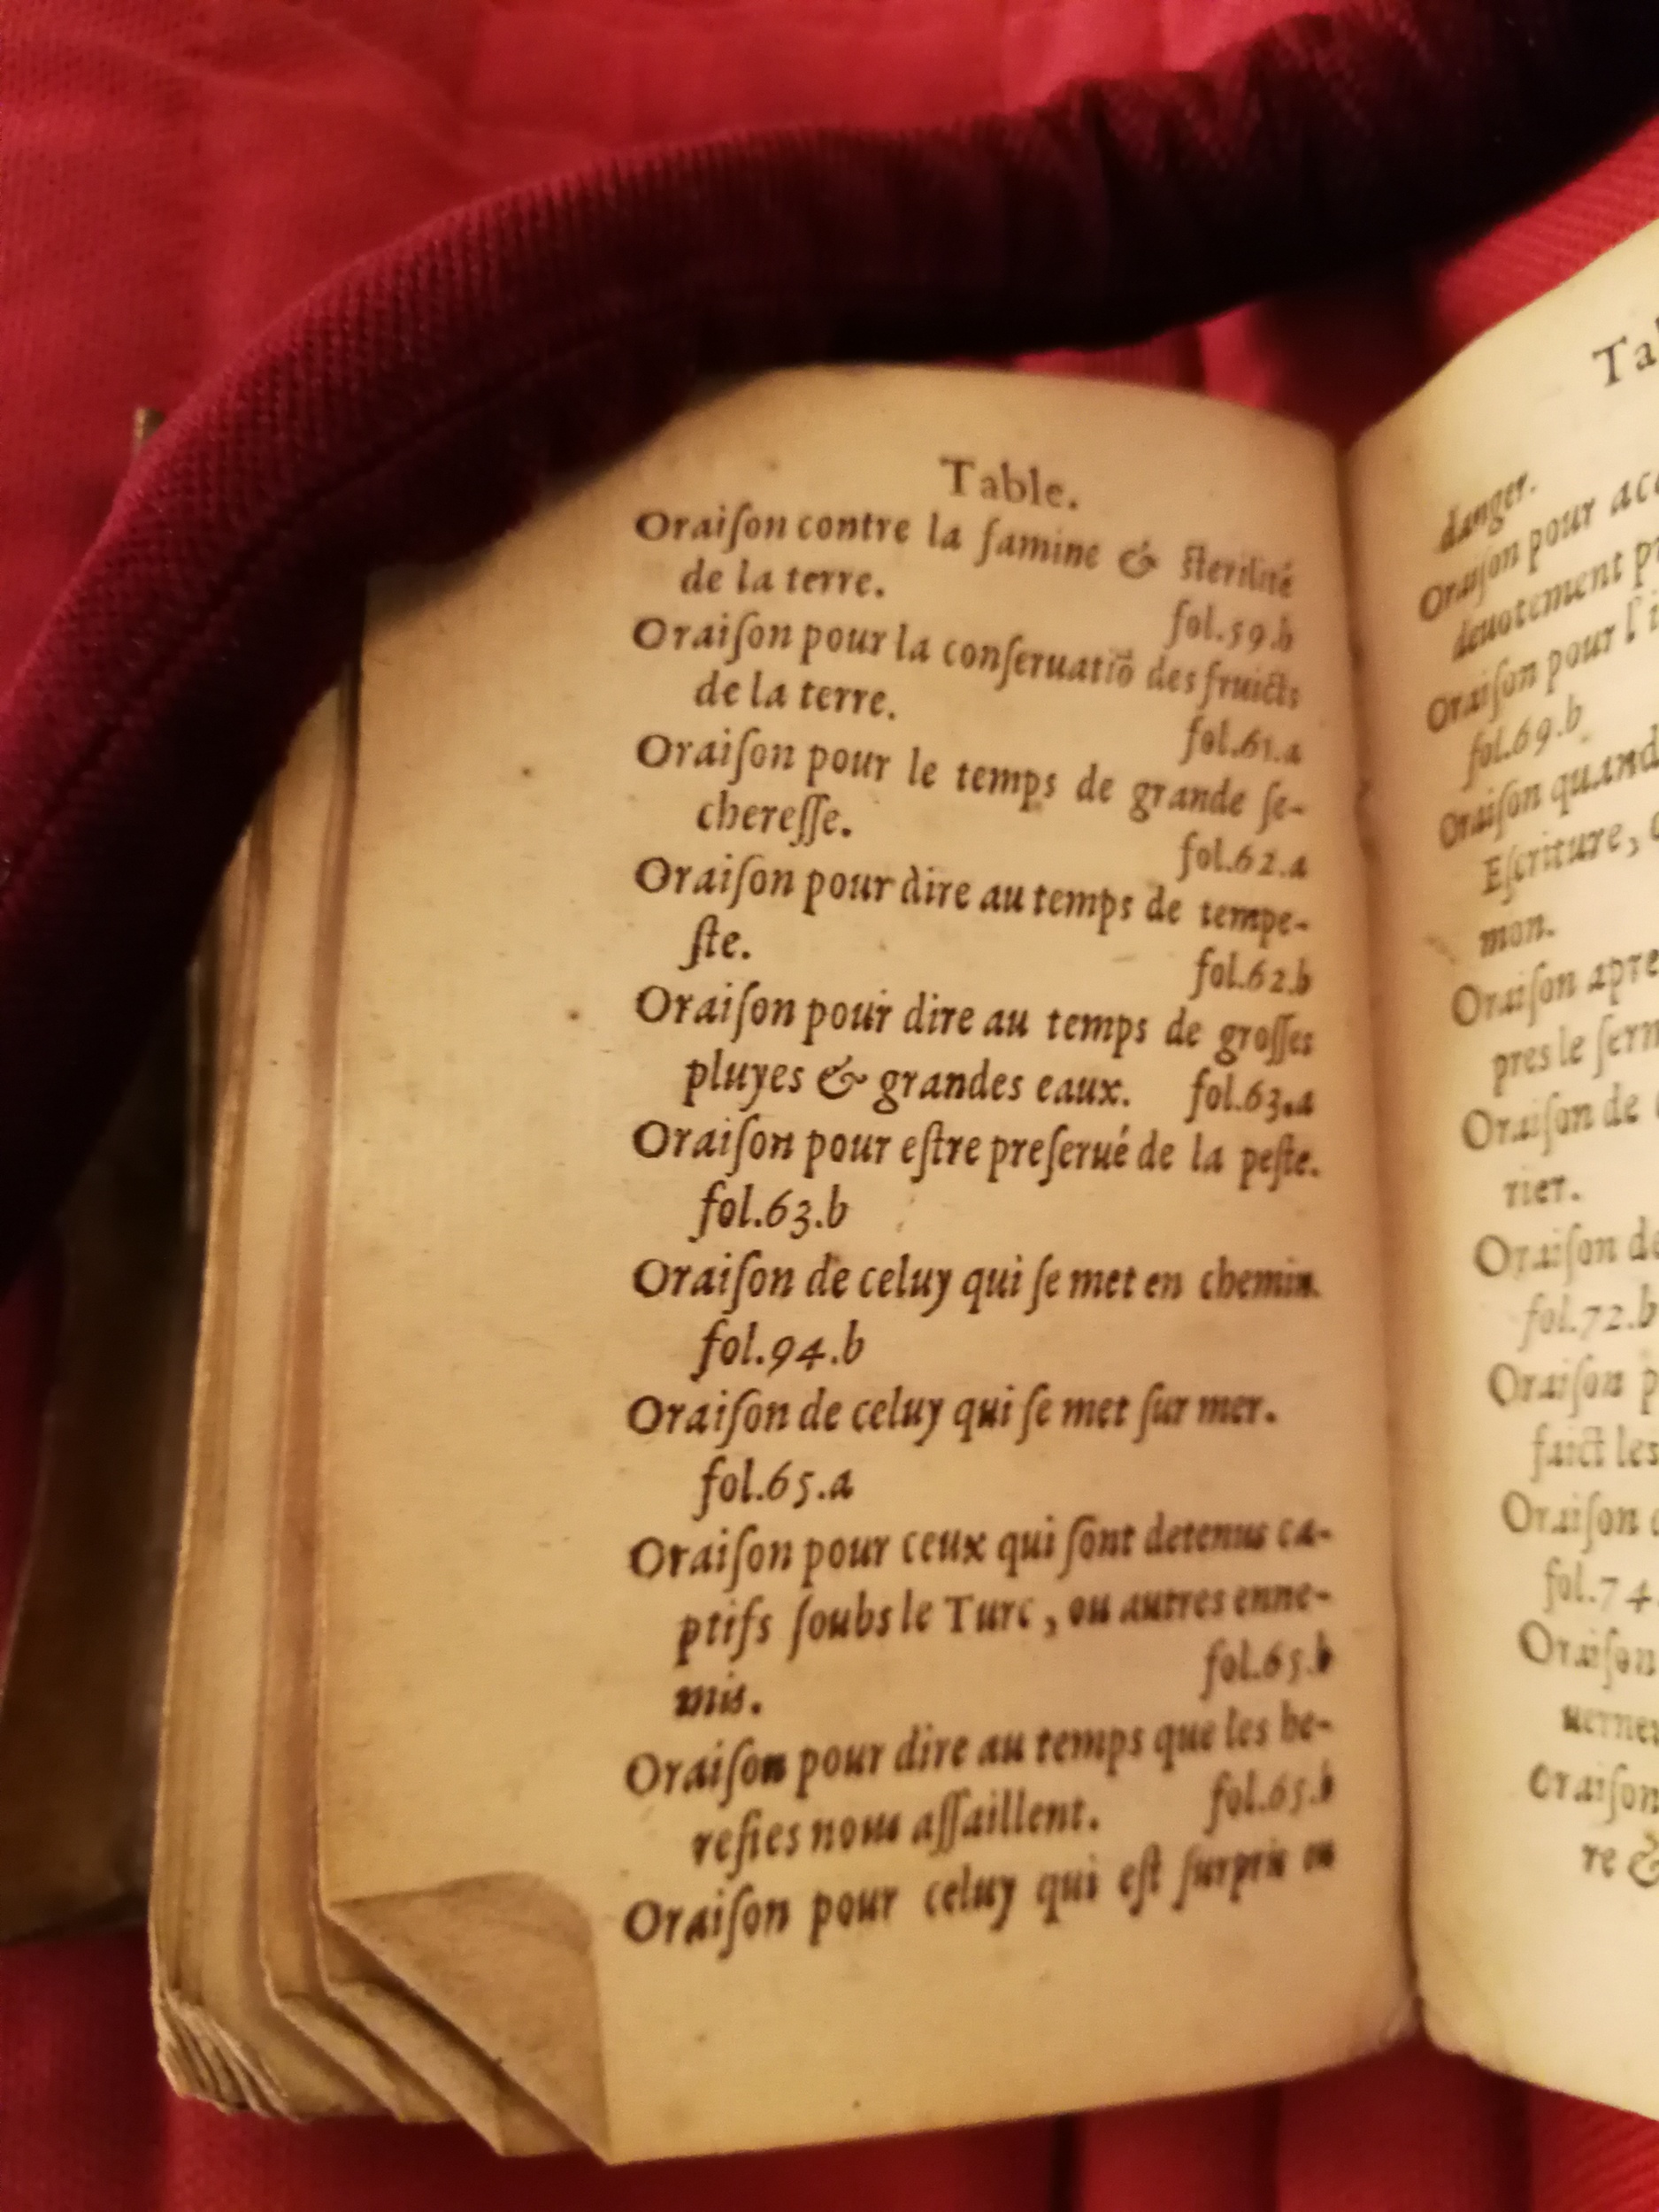 Table.
Oraiſon contre la famine & ſterilité
de la terre. fol.59.b
Oraiſon pour la conſeruatiō des fruicts
de la terre. fol.61.a
Oraiſon pour le temps de grande ſe-
chereſſe. fol.62.a
Oraiſon pour dire au temps de tempe-
ſte. fol.62.b
Oraiſon pour dire au temps de groſſes
pluyes & grandes eaux. fol.63.a
Oraiſon pour eſtre preſerué de la peſte.
fol.63.b
Oraiſon de celuy qui ſe met en chemin.
fol.94.b
Oraiſon de celuy qui ſe met ſur mer.
fol.65.a
Oraiſon pour ceux qui ſont detenus ca-
ptifs ſoubs le Turc, ou autres enne-
mis. fol.65.b
Oraiſon pour dire au temps que les he-
reſies nous aſſaillent. fol.65.b
Oraiſon pour celuy qui eſt ſurpris en
Ta
danger.
Oraiſon pour acc
deuotement pr
Oraiſon pour l'i
fol.69.b
Oraiſon quand
Eſcriture, 
mon.
Oraiſon apre
pres le ſerm
Oraiſon de
rier.
Oraiſon de
fol.72.b
Oraiſon p
faict les
Oraiſon
fol.74.
Oraiſon
uerne
Oraiſon
re &